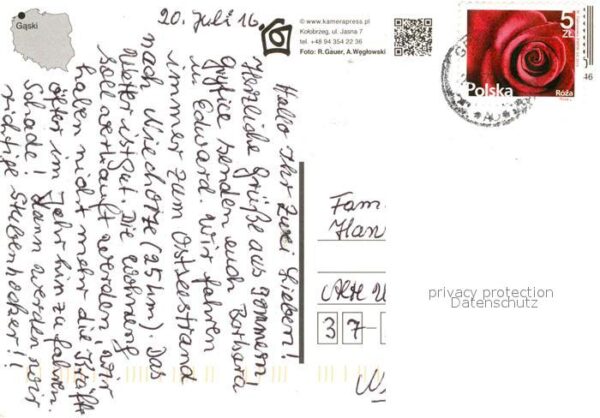 Gąski
20. Juli 16.
© www.kamerapress.pl
Kołobrzeg, ul. Jasna 7
tel. +48 94 354 22 36
Foto: R.Gauer, A.Węgłowski
5
ZŁ
Polska
Róża
Hallo Ihr zwei Lieben!
Herzliche Grüße aus Pommern!
Gryfice senden euch Barbara
u. Edward. Wir fahren
immer zum Ostseestrand
nach Niechorze (25 km). Das
Wetter ist gut. Die Wohnung
soll verkauft werden, wir
haben nicht mehr die Kraft
öfter im Jahr hin zu fahren.
Schade! Dann werden wir
richtige Stubenhocker!!
Fam.
Han
Alte
37-
privacy protection
Datenschutz